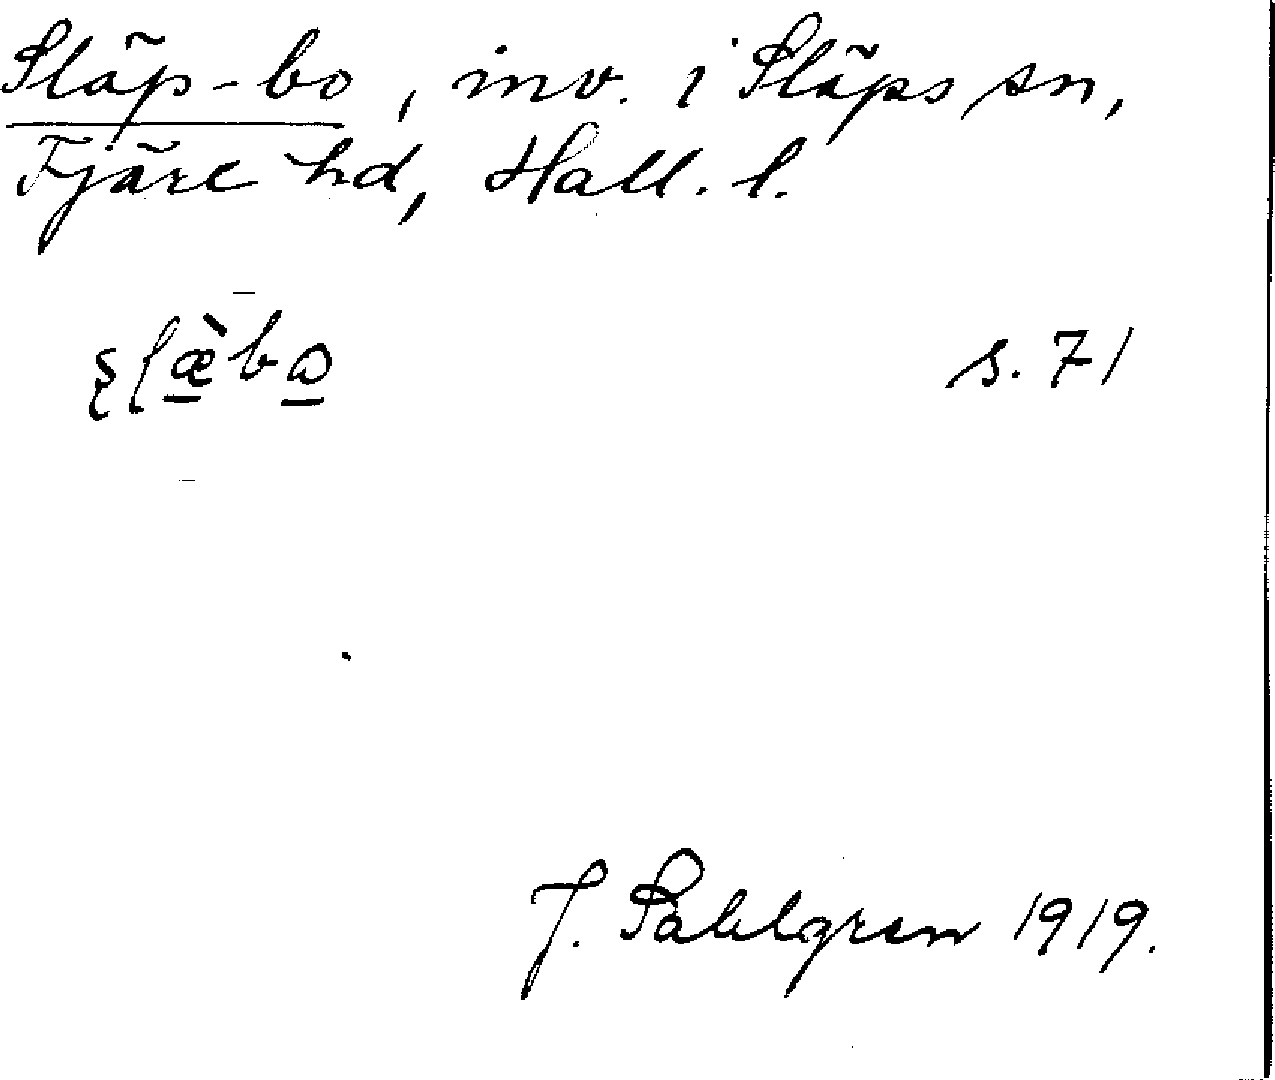 Släp-bo, inv. i Släps sn,
Fjäre hd, Hall. l.
s. 71
J. Sahlgren 1919.